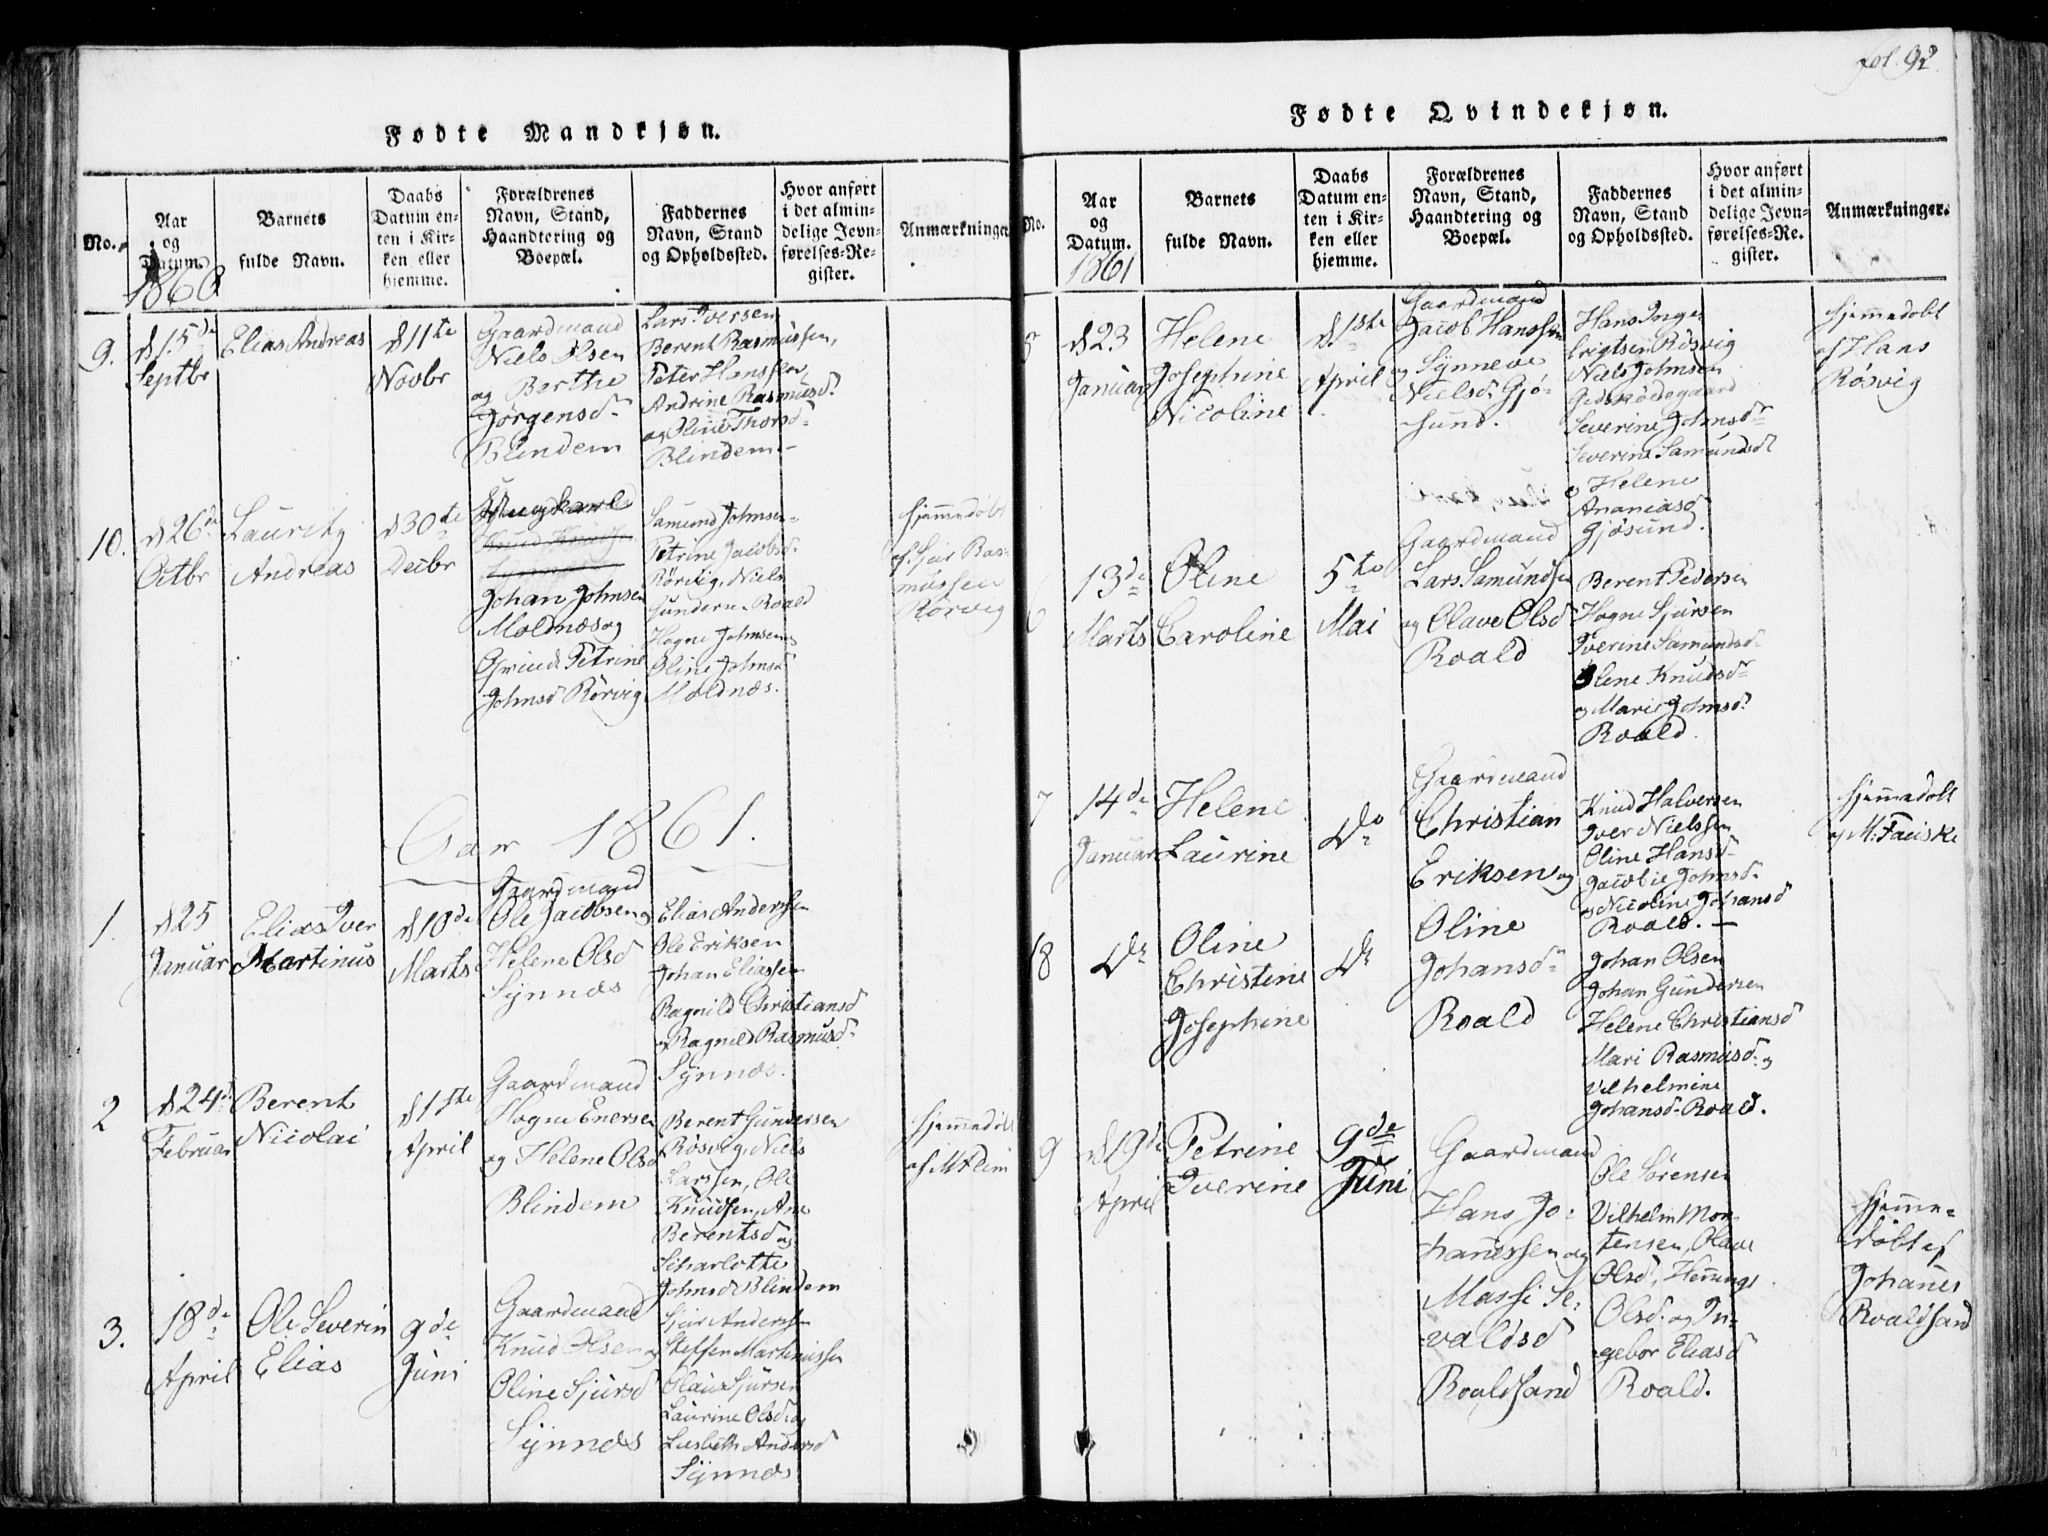 fol. 92.
Fødte Mandkjøn.
No.
Aar
og
Datum.
1860
Barnets
fulde Navn.
Daabs
Datum en-
ten i Kir-
ken eller
hjemme.
Forældrenes
Navn, Stand,
Haandtering og
Boepæl.
Faddernes
Navn, Stand
og Opholdssted.
Hvor anført
i det almin-
delige Jevn-
førelses-Re-
gister.
Anmærkninger
9.
d 15de
Septbr
Elias Andreas
d 11te
Novbr
Gaardmand
Niels Olsen
og Berthe
Jørgensd
Blindem
Lars Iversen
Berent Rasmussen,
Peter Hanssen,
Andrine Rasmusd.
og Oline Thorsd
Blindem
10.
d 26de
Octbr
Lauritz
Andreas
d 30te
Decbr
Ungkarl
Johan Johnsen
Moldnæs og
Petrine
Johnsd Rørvig
Samund Johnsen
Petrine Jacobsd.
Rørvig, Niels
Gundersen Roald
Hogne Johnsen
Oline Johnsd
Moldnæs.
hjemmedøbt
af Sjur Ras-
mussen
Rørvig
Aar 1861.
1.
d 25
Januar
Elias Iver
Martinus
d 10de
Marts
Gaardmand
Ole Jacobsen og
Helene Olsd
Synnæs
Elias Anderssen
Ole Eriksen
Johan Eliassen
Ragnild Christiansd
og Ragnild Rasmusd.
Synnæs.
2
d 24de
Februar
Berent
Nicolai
d 1ste
April
Gaardmand
Hogne Enersen
og Helene Olsd
Blindem
Berent Gundersen
Røsvig, Niels
Larssen, Ole
Knudsen, Ane
Berentsd og
Scharlotte
Johnsd Blindem
hjemmedøbt
af M Alim
3.
18de
April
Ole Severin
Elias
9de
Juni
Gaardmand
Knud Olsen og
Oline Sjursd
Synnæs
Sjur Andersen
Steffen Martinussen
Olaus Sjursen
Laurine Olsd og
Lisbeth Andersd
Synnæs
Fødte Qvindekjøn.
No.
Aar
og
Datum.
1861
Barnets
fulde Navn.
Daabs
Datum en-
ten i Kir-
ken eller
hjemme.
Forældrenes
Navn, Stand,
Haandtering og
Boepæl.
Faddernes
Navn, Stand
og Opholdssted.
Hvor anført
i det almin-
delige Jevn-
førelses-Re-
gister.
Anmærkninger.
5
d 23
Januar
Helene
Josephine
Nicoline
d 1ste
April
Gaardmand
Jacob Hanssen
og Synneve
Nielsd. Gjø-
sund.
Hans Inge-
brigtsen Røsvig
Niels Johnsen
Gidskødegaard
Severine Johnsd
Severine Samundsd
og Helene
Ananiasd
Gjøsund.
hjemmedøbt
af Hans
Røsvig
6
13de
Marts
Oline
Caroline
5te
Mai
Gaardmand
Lars Samundsen
og Olave Olsd
Roald
Berent Pedersen
Hogne Sjursen
Iverine Samundsd
Olene Knudsd
og Marie Johnsd.
Roald.
7
14de
Januar
Helene
Laurine
Do
Gaardmand
Christian
Eriksen og
Oline
Johansd
Roald
Knud Halversen
Iver Nielssen
Oline Hansd
Jacobie Johnsd.
og Nicoline Johansd
Roald. —
hjemmedøbt
af M. Fauske
8
Do
Oline
Christine
Josephine
Do
Johan Olsen
Johan Gundersen
Helene Christiansd
Mari Rasmusd. og
Vilhelmine
Johansd. Roald.
9
d 19de
April
Petrine
Iverine
9de
Juni
Gaardmand
Hans Jo-
hanessen og
Massi Se-
valdsd
Roaldsand
Ole Sørensen
Vilhelm Mor-
tensen, Olave
Olsd, Hennings
Olsd. og In-
gebor Eliasd
Roald.
hjemme-
døbt af
Johannes
Roaldsand